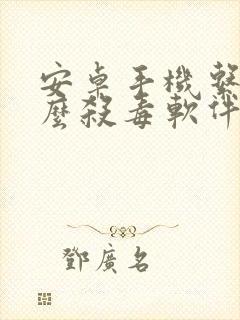 安卓手機繫
麼殺毒軟件
鄧廣名